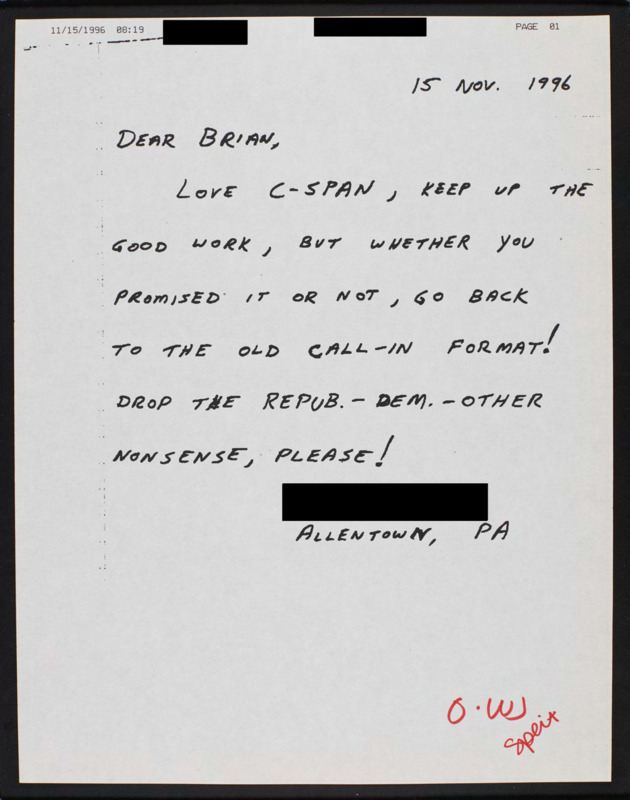 11/15/1996 08:19 PAGE 01
15 NOV. 1996
DEAR BRIAN,
LOVE C-SPAN, KEEP UP THE
GOOD WORK, BUT WHETHER YOU
PROMISED IT OR NOT, GO BACK
TO THE OLD CALL-IN FORMAT!
DROP THE REPUB.-DEM.-OTHER
NONSENSE, PLEASE!
ALLENTOWN, PA